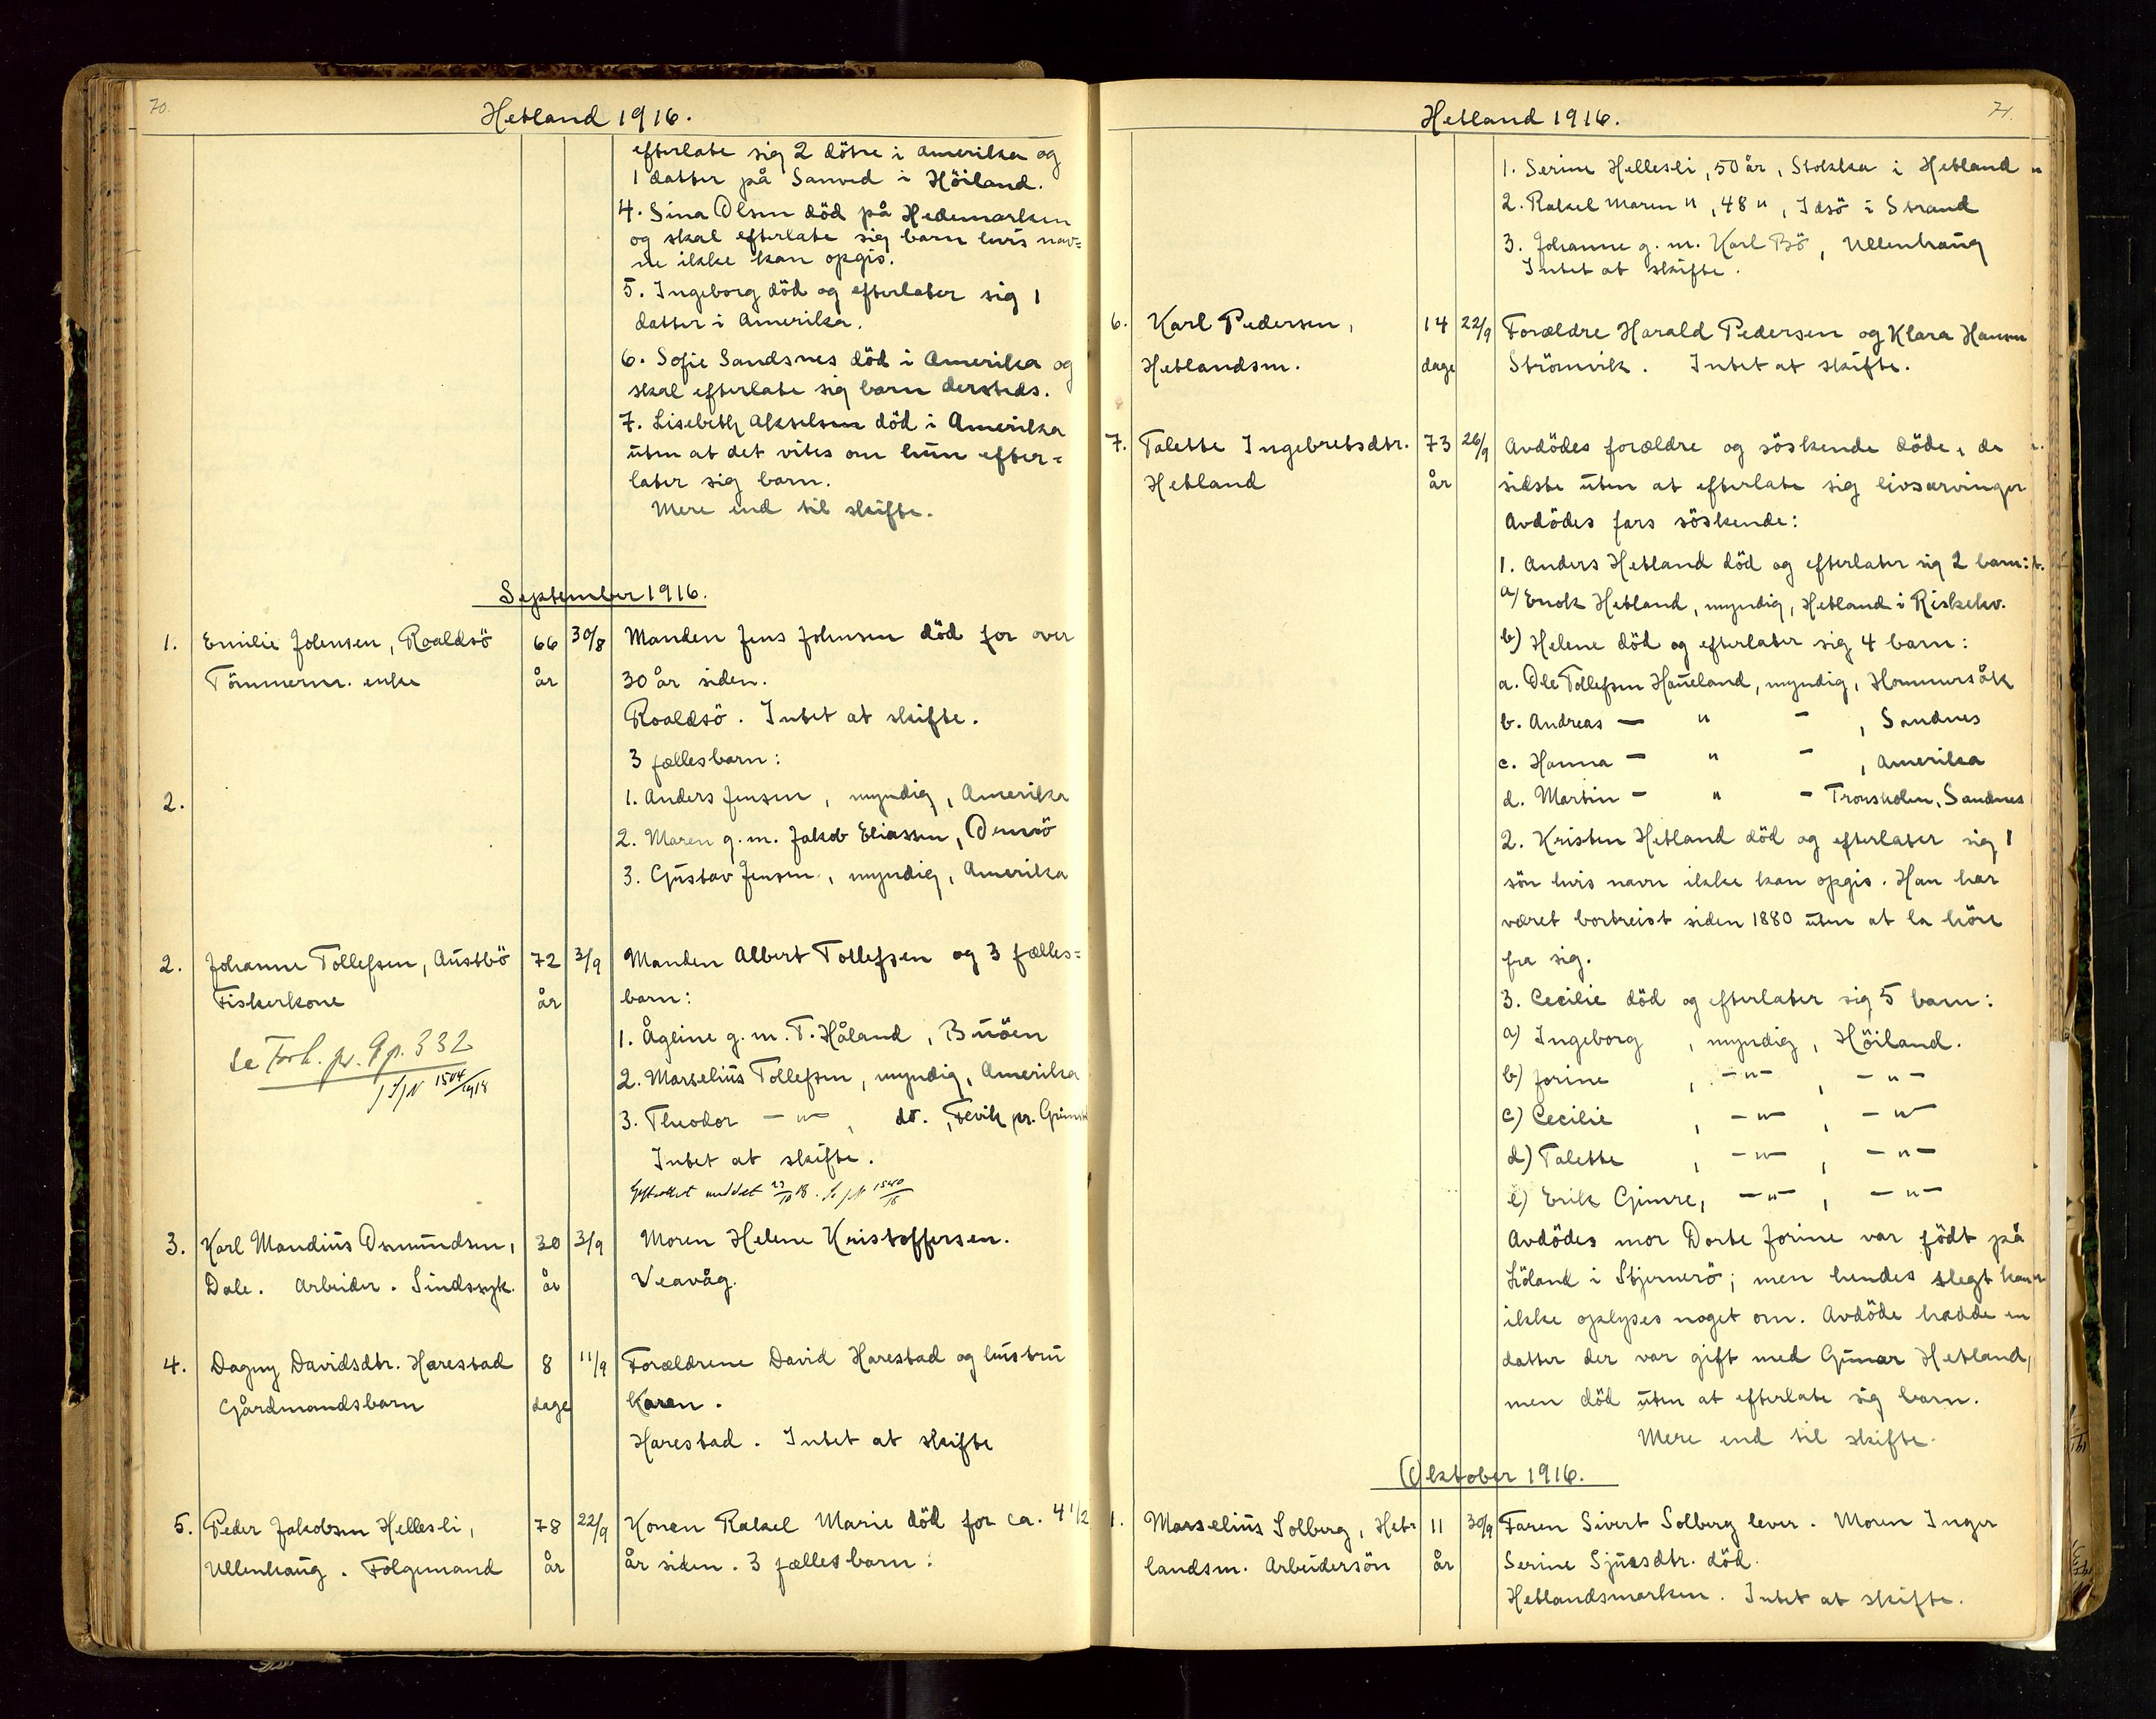 70.
Hetland 1916.
efterlate sig 2 dötre i Amerika og
1 datter på Sanved i Höiland.
4. Sina Olsen död på Hedemarken
og skal efterlate sig barn hvis nav=
ne ikke kan opgis.
5. Ingeborg död og efterlater sig 1
datter i Amerika.
6. Sofie Sandsnes död i Amerika og
skal efterlate sig barn dersteds.
7. Lisebeth Akselsen död i Amerika
uten at det vites om hun efter=
later sig barn.
Mere end til skifte.
September 1916.
1. Emilie Johnsen, Roaldsö 66 30/8 Manden Jens Johnsen död for over
Tömmerm. enke år 30 år siden.
Roaldsö. Intet at skifte.
3 fællesbarn:
2. 1. Anders Jensen, myndig, Amerika
2. Maren g.m. Jakob Eliassen,
3. Gustav Jensen, myndig, Amerika
2. Johanne Tollefsen, Austbö 72 3/9 Manden Albert Tollefsen og 3 fælles=
Fiskerkone år barn:
1. Ågeine g.m. T. Håland, Buöen
se Forh. pr. 9 p. 332
2. Marselius Tollefsen, myndig, Amerika
1504/1918
3. Theodor —"— , do. , Fevik pr. Grimst
Intet at skifte.
meddelt 23/10 18. 1540/18
3. Karl Mandius Osmundsen, 30 3/9 Moren Helene Kristoffersen.
Dale. Arbeider. Sindssyk. år Veavåg.
4. Dagny Davidsdtr. Harestad 8 11/9 Forældrene David Harestad og hustru
Gårdmandsbarn dage Karen.
Harestad. Intet at skifte
5. Peder Jakobsen Hellesli, 78 22/9 Konen Rakel Marie död for ca. 4 1/2
Ullenhaug. Folgemand år år siden. 3 fællesbarn:
71.
Hetland 1916.
1. Serine Hellesli, 50 år, Stokka i Hetland
2. Rakel Maren ", 48 ", Idsö i Strand
3. Johanne g.m. Karl Bö, Ullenhaug
Intet at skifte.
6. Karl Pedersen, 14 22/9 Forældre Harald Pedersen og Klara Hansen
Hetlandsm. dage Strömvik. Intet at skifte.
7. Talette Ingebretsdtr. 73 26/9 Avdödes forældre og söskende döde, de
Hetland år sidste uten at efterlate sig livsarvinger
Avdödes fars söskende:
1. Anders Hetland död og efterlater sig 2 barn:
a) Enok Hetland, myndig, Hetland i Riskekv.
b) Helene död og efterlater sig 4 barn:
a. Ole Tollefsen Haueland, myndig, Hommersåk
b. Andreas — " — , Sandnes
c. Hanna — " — , Amerika
d. Martin — " — Tronsholen, Sandnes
2. Kristen Hetland död og efterlater sig 1
sön hvis navn ikke kan opgis. Han har
været bortreist siden 1880 uten at la höre
fra sig.
3. Cecilie död og efterlater sig 5 barn:
a) Ingeborg , myndig, Höiland.
b) Jorine , —"— , —"—
c) Cecilie , —"— , —"—
d) Talette , —"— , —"—
e) Erik Gimre, —"— , —"—
Avdödes mor Dorte Jorine var födt på
i Stjernerö; men hendes slegt kan
ikke oplyses noget om. Avdöde hadde en
datter der var gift med Gunar Hetland,
men död uten at efterlate sig barn.
Mere end til skifte.
Oktober 1916.
1. Marselius Solberg, Het= 11 30/9 Faren Sivert Solberg lever. Moren Inger
landsm. Arbeidersön år Serine Sjursdtr. död.
Hetlandsmarken. Intet at skifte.